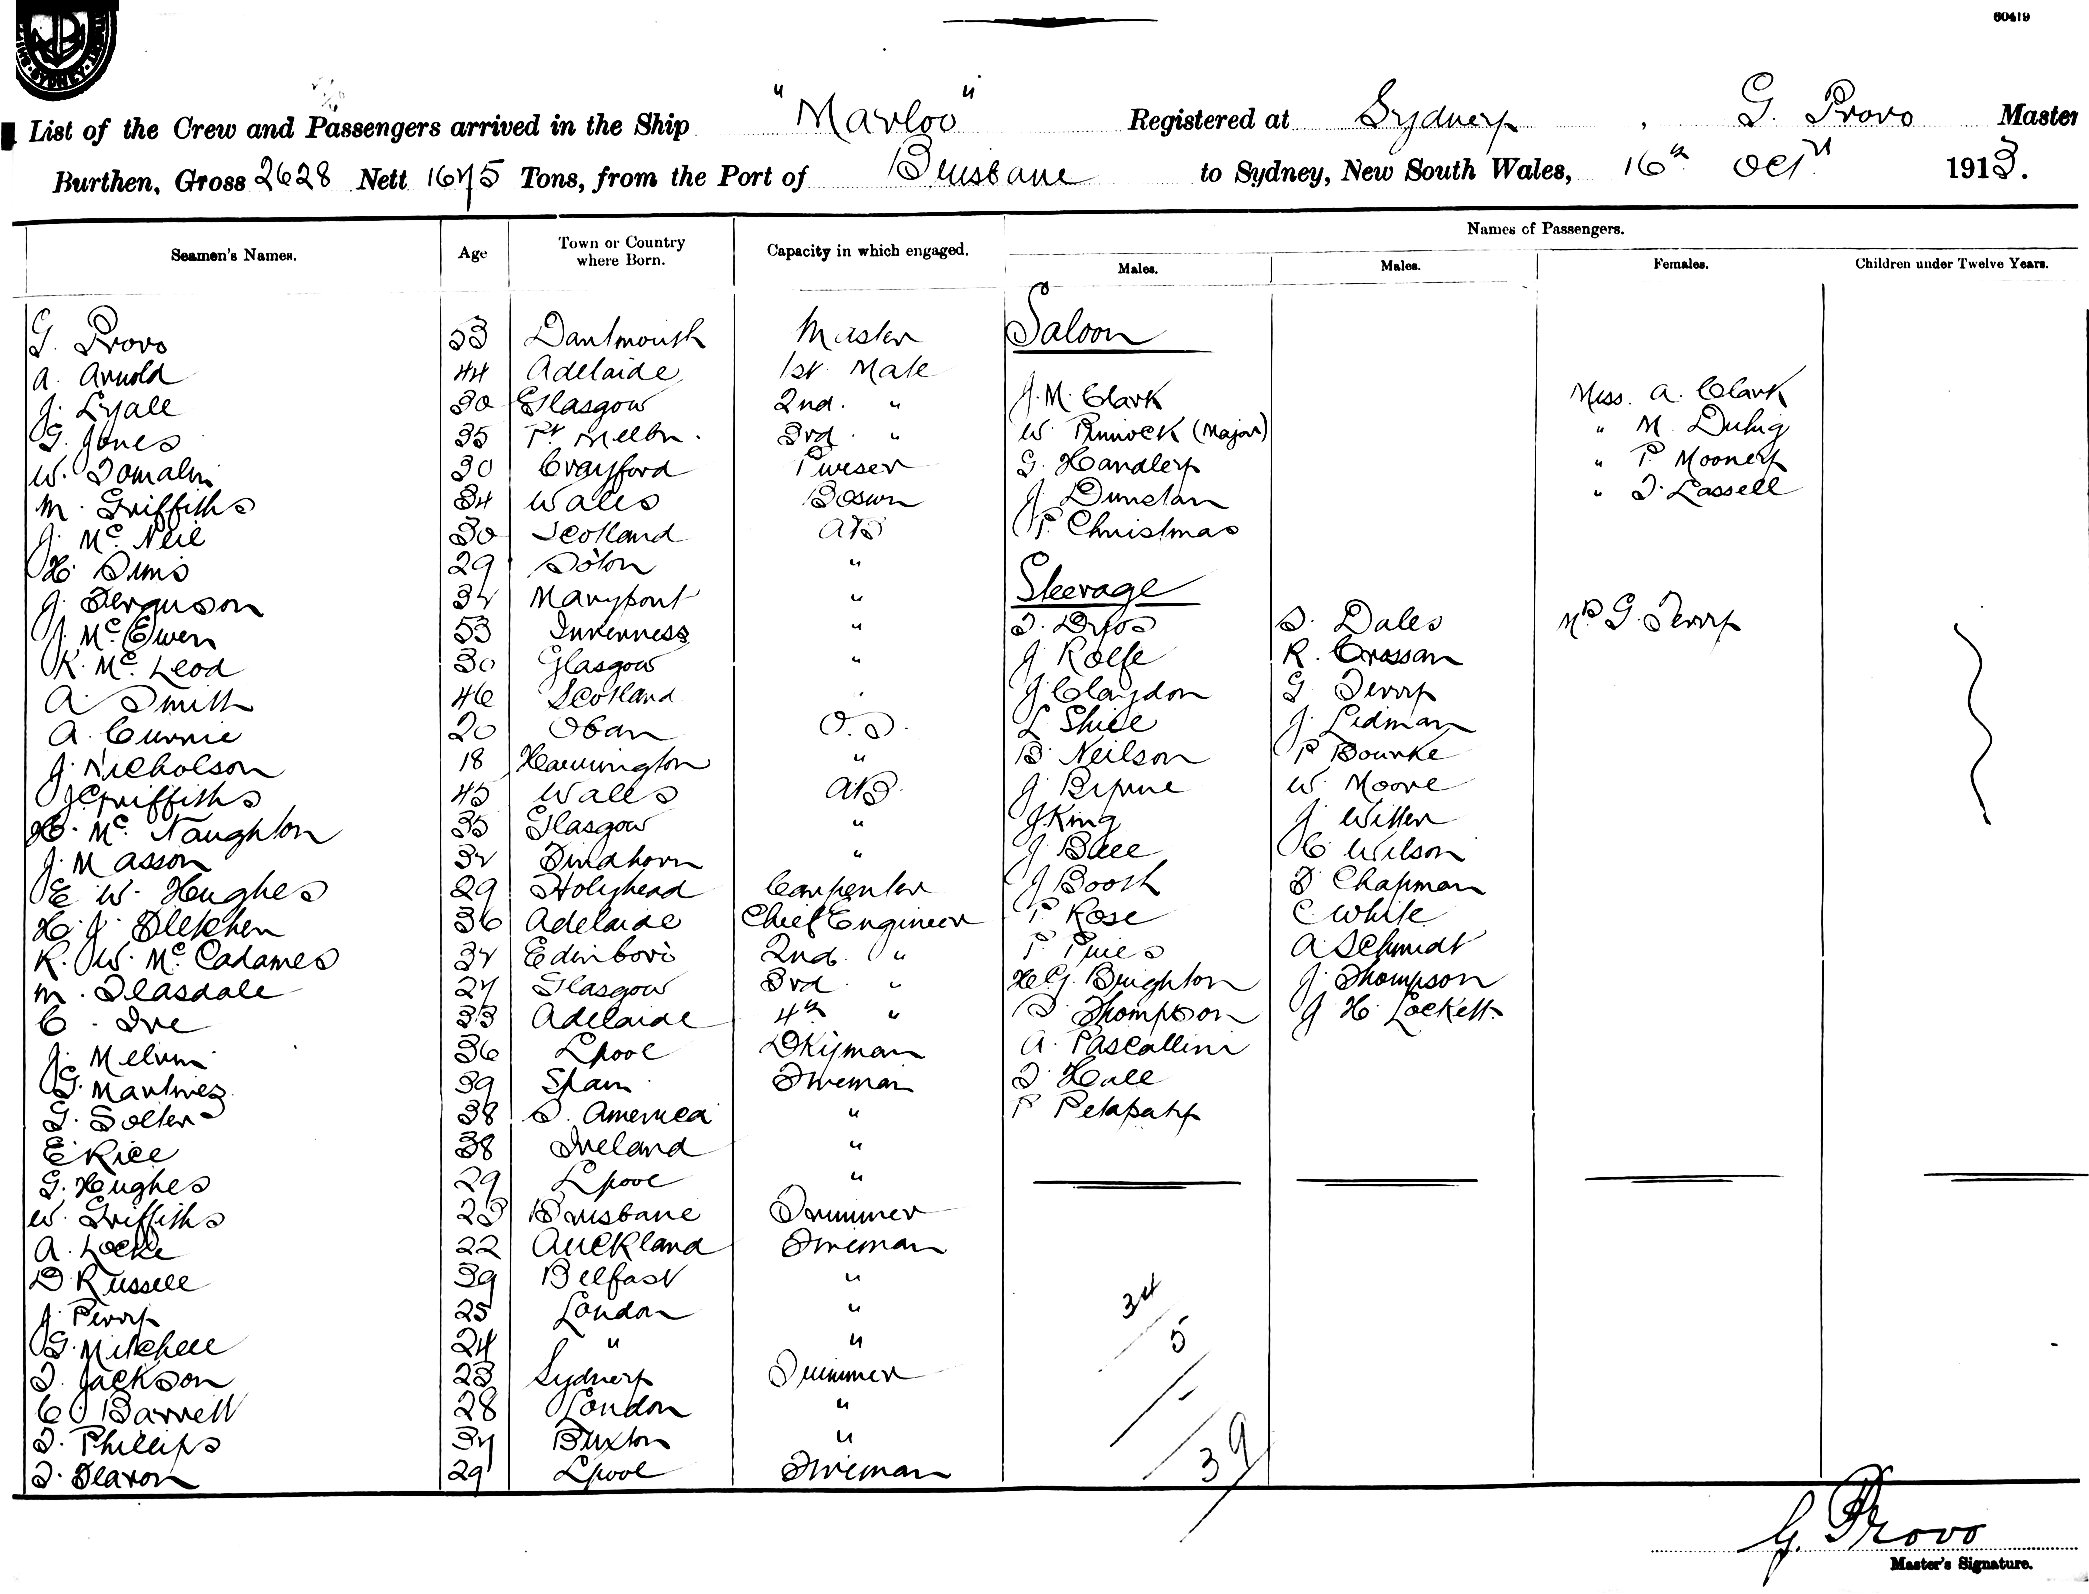 60419
"Marloo"
List of the Crew and Passengers arrived in the Ship "Marloo" Registered at Sydney, G. Provo Master
Burthen, Gross 2628 Nett 1675 Tons, from the Port of Brisbane to Sydney, New South Wales, 16th Octr 1913.
Names of Passengers.
Seamen's Names. Age Town or Country where Born. Capacity in which engaged. Males. Males. Females. Children under Twelve Years.
G. Provo 53 Dartmouth Master Saloon
A. Arnold 44 Adelaide 1st Mate
J. Lyall 30 Glasgow 2nd. " J. M. Clark Miss. A. Clark
G. Jones 35 Pt Melbn. 3rd. " W. Pinnock (Major) " M. Duhig
W. Tomalin 30 Crayford Purser G. Handley " P. Mooney
M. Griffiths 34 Wales Bosun J. Dunstan " T. Lassell
J. Mc. Neil 30 Scotland AB P. Christmas
H. Sims 29 Soton "
J. Ferguson 32 Maryport " Steerage
J. Mc. Ewen 53 Inverness " S. Dales Mrs G. Terry
K. Mc. Leod 30 Glasgow " J. Rolfe R. Crossan
A. Smith 46 Scotland " J. Claydon G. Terry
A. Currie 20 Oban O.S. L Shiel J. Lidman
J. Nicholson 18 Harrington " B. Neilson P Bourke
J Griffiths 45 Wales AB. J Byrne W. Moore
H. Mc. Naughton 35 Glasgow " J King J Witten
J. Masson 32 Findhorn " J Ball C Wilson
E W. Hughes 29 Holyhead Carpenter J Booth F Chapman
H. J. Fletcher 36 Adelaide Chief Engineer P Rose C White
R. W. Mc. Cadames 32 Edinboro 2nd. " P. Puies A Schmidt
M. Teasdale 27 Glasgow 3rd. " H.G. Brighton J. Thompson
C. Ive 33 Adelaide 4th " S. Thompson J H. Lockett
J. Melvin 36 Lpool Dkyman A. Pascallini
G. Martinez 39 Spain Fireman T Hall
G. Solter 38 S. America " P Petapaty
E Rice 38 Ireland "
G. Hughes 29 Lpool "
W. Griffiths 23 Brisbane Trimmer
A. Locke 22 Auckland Fireman
D Russell 39 Belfast "
J. Perry 25 London "
G. Mitchell 24 " "
T. Jackson 23 Sydney Trimmer
C Barrett 28 London "
T. Phillips 37 Buxton "
T. Flaxon 29 Lpool Fireman
34
5
39
G. Provo
Master's Signature.